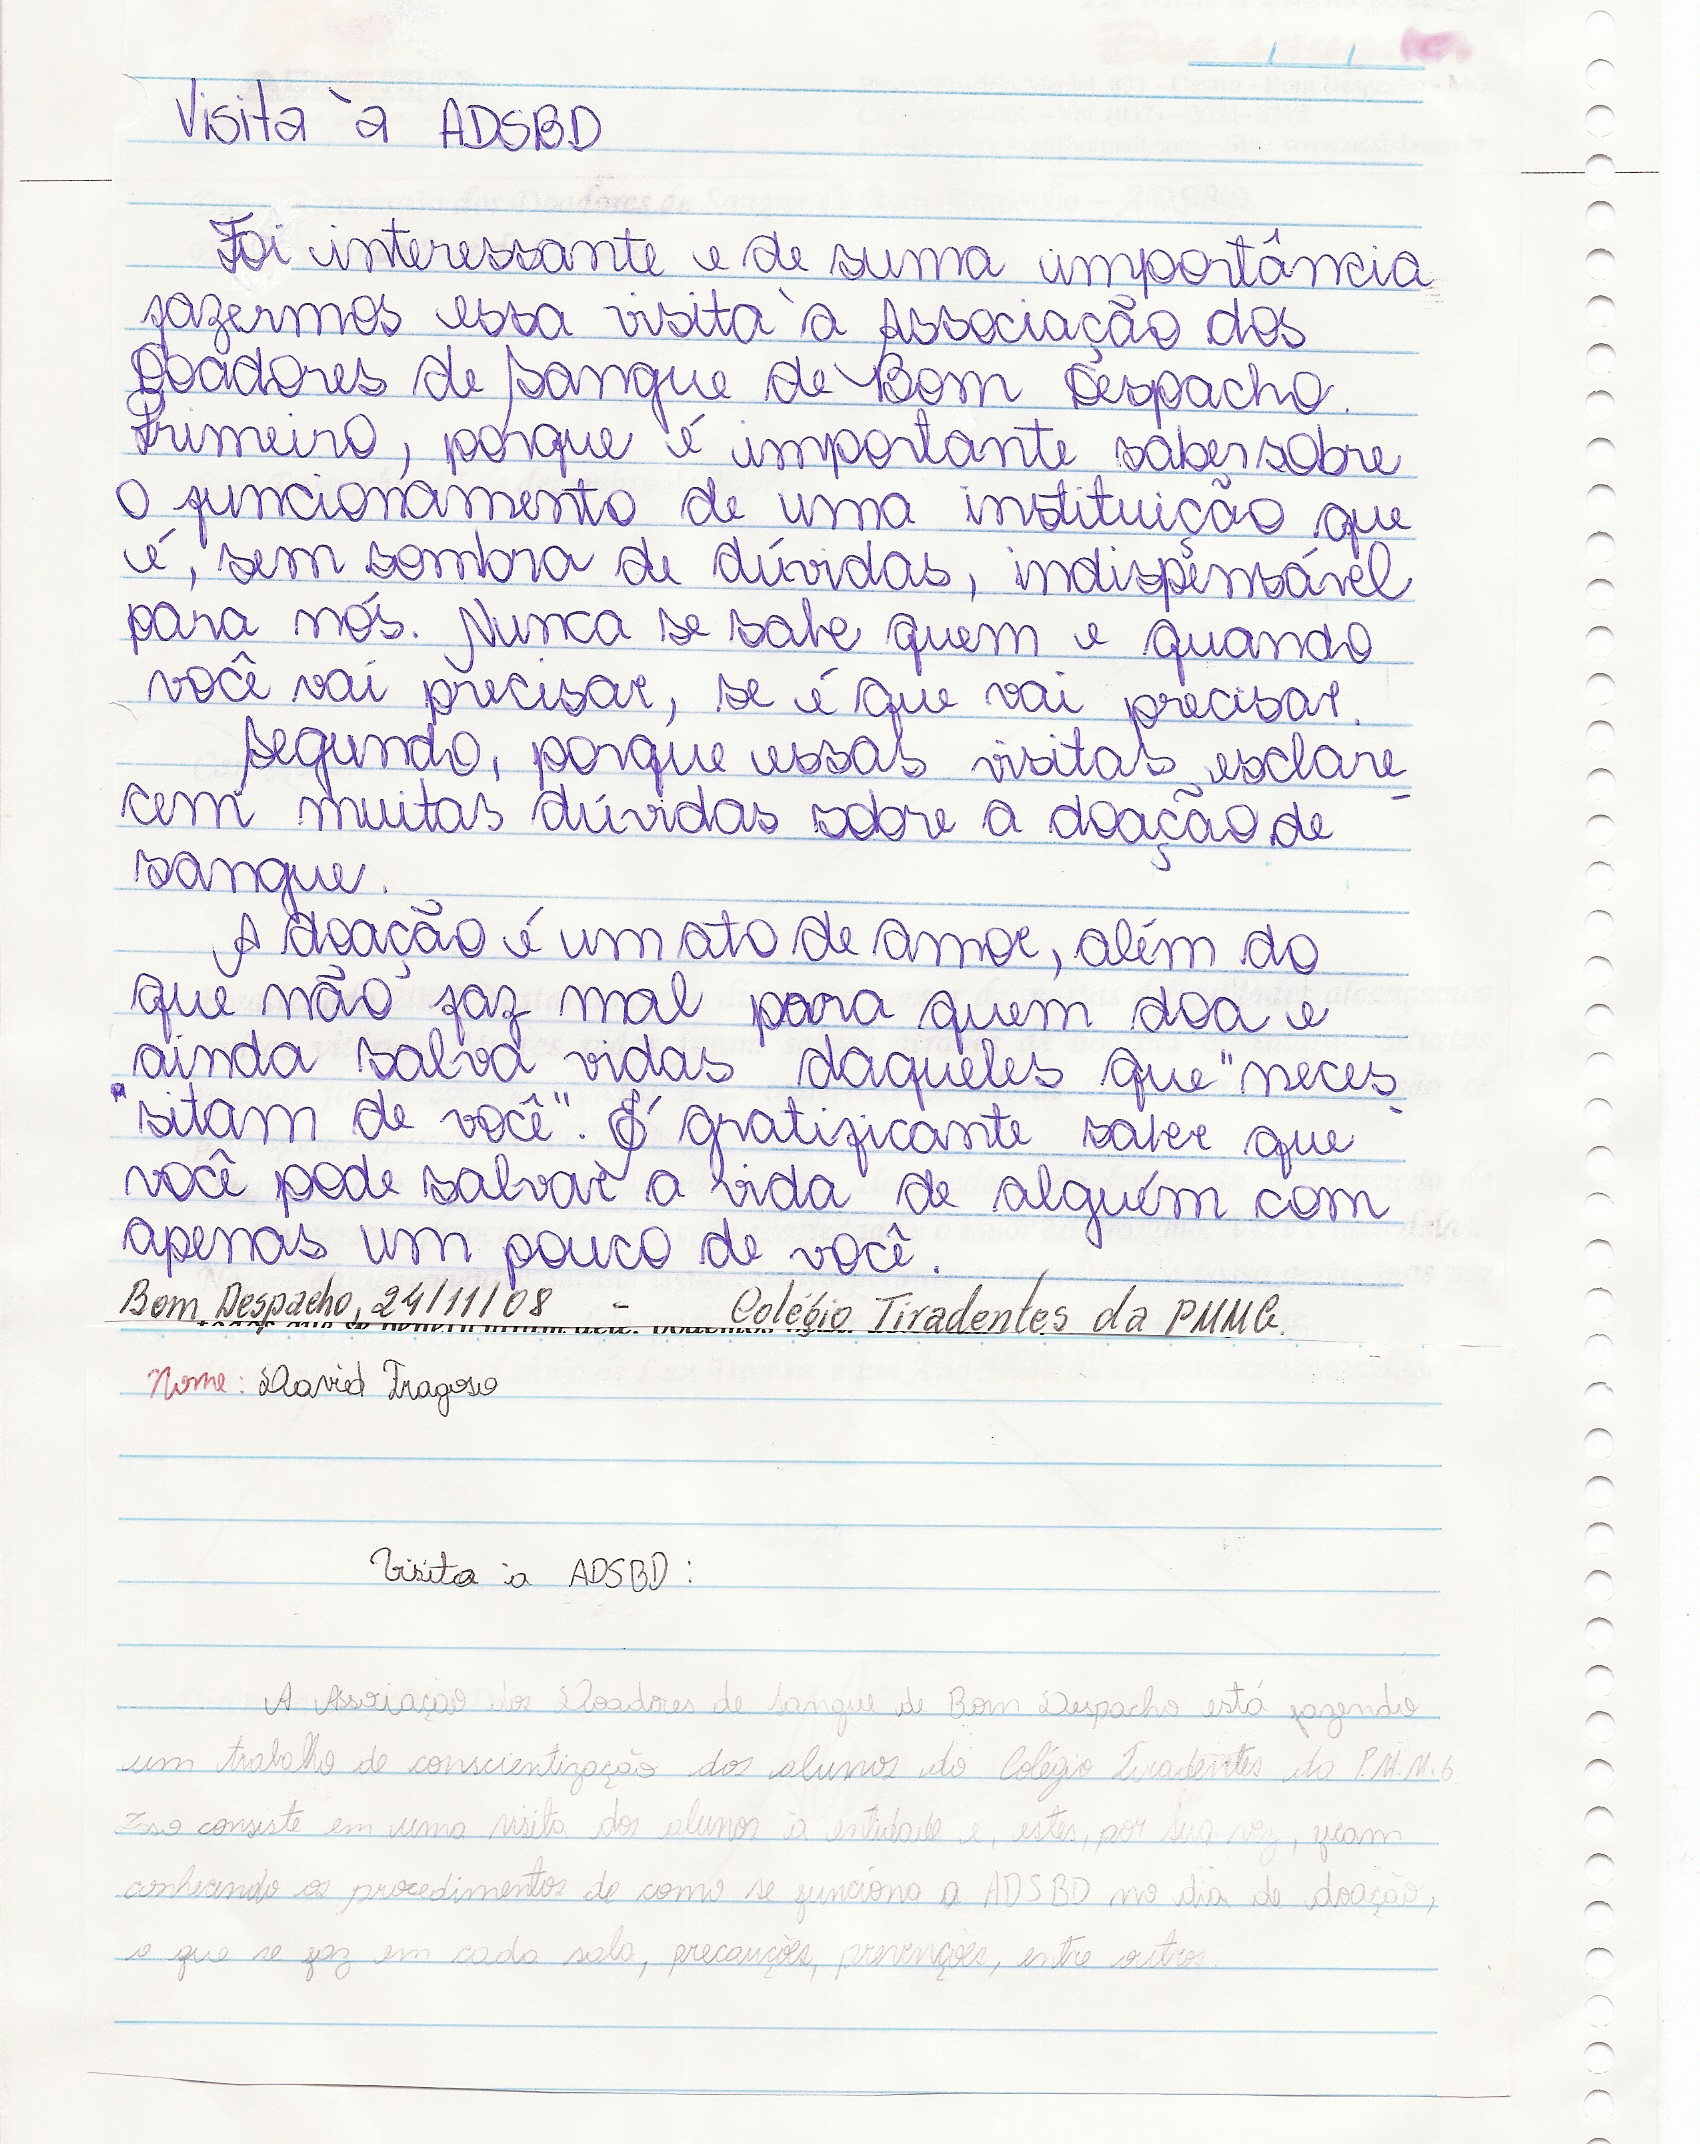 Visita à ADSBD
Foi interessante e de suma importância
fazermos essa visita à Associação dos
Doadores de Sangue de Bom Despacho.
Primeiro, porque é importante saber sobre
o funcionamento de uma instituição que
é, sem sombra de dúvidas, indispensável
para nós. Nunca se sabe quem e quando
você vai precisar, se é que vai precisar.
Segundo, porque essas visitas esclare-
cem muitas dúvidas sobre a doação de
sangue.
A doação é um ato de amor, além do
que não faz mal para quem doa e
ainda salva vidas daqueles que "neces
sitam de você". É gratificante saber que
você pode salvar a vida de alguém com
apenas um pouco de você.
Bom Despacho, 24/11/08 - Colégio Tiradentes da PMMG.
Nome: David Fragoso
Visita à ADSBD:
A Associação dos Doadores de Sangue de Bom Despacho está fazendo
um trabalho de conscientização dos alunos do Colégio Tiradentes da P.M.M.G.
Isso consiste em uma visita dos alunos à entidade e, estes, por sua vez, ficam
conhecendo os procedimentos de como se funciona a ADSBD no dia de doação,
o que se faz em cada sala, precauções, prevenções, entre outros.